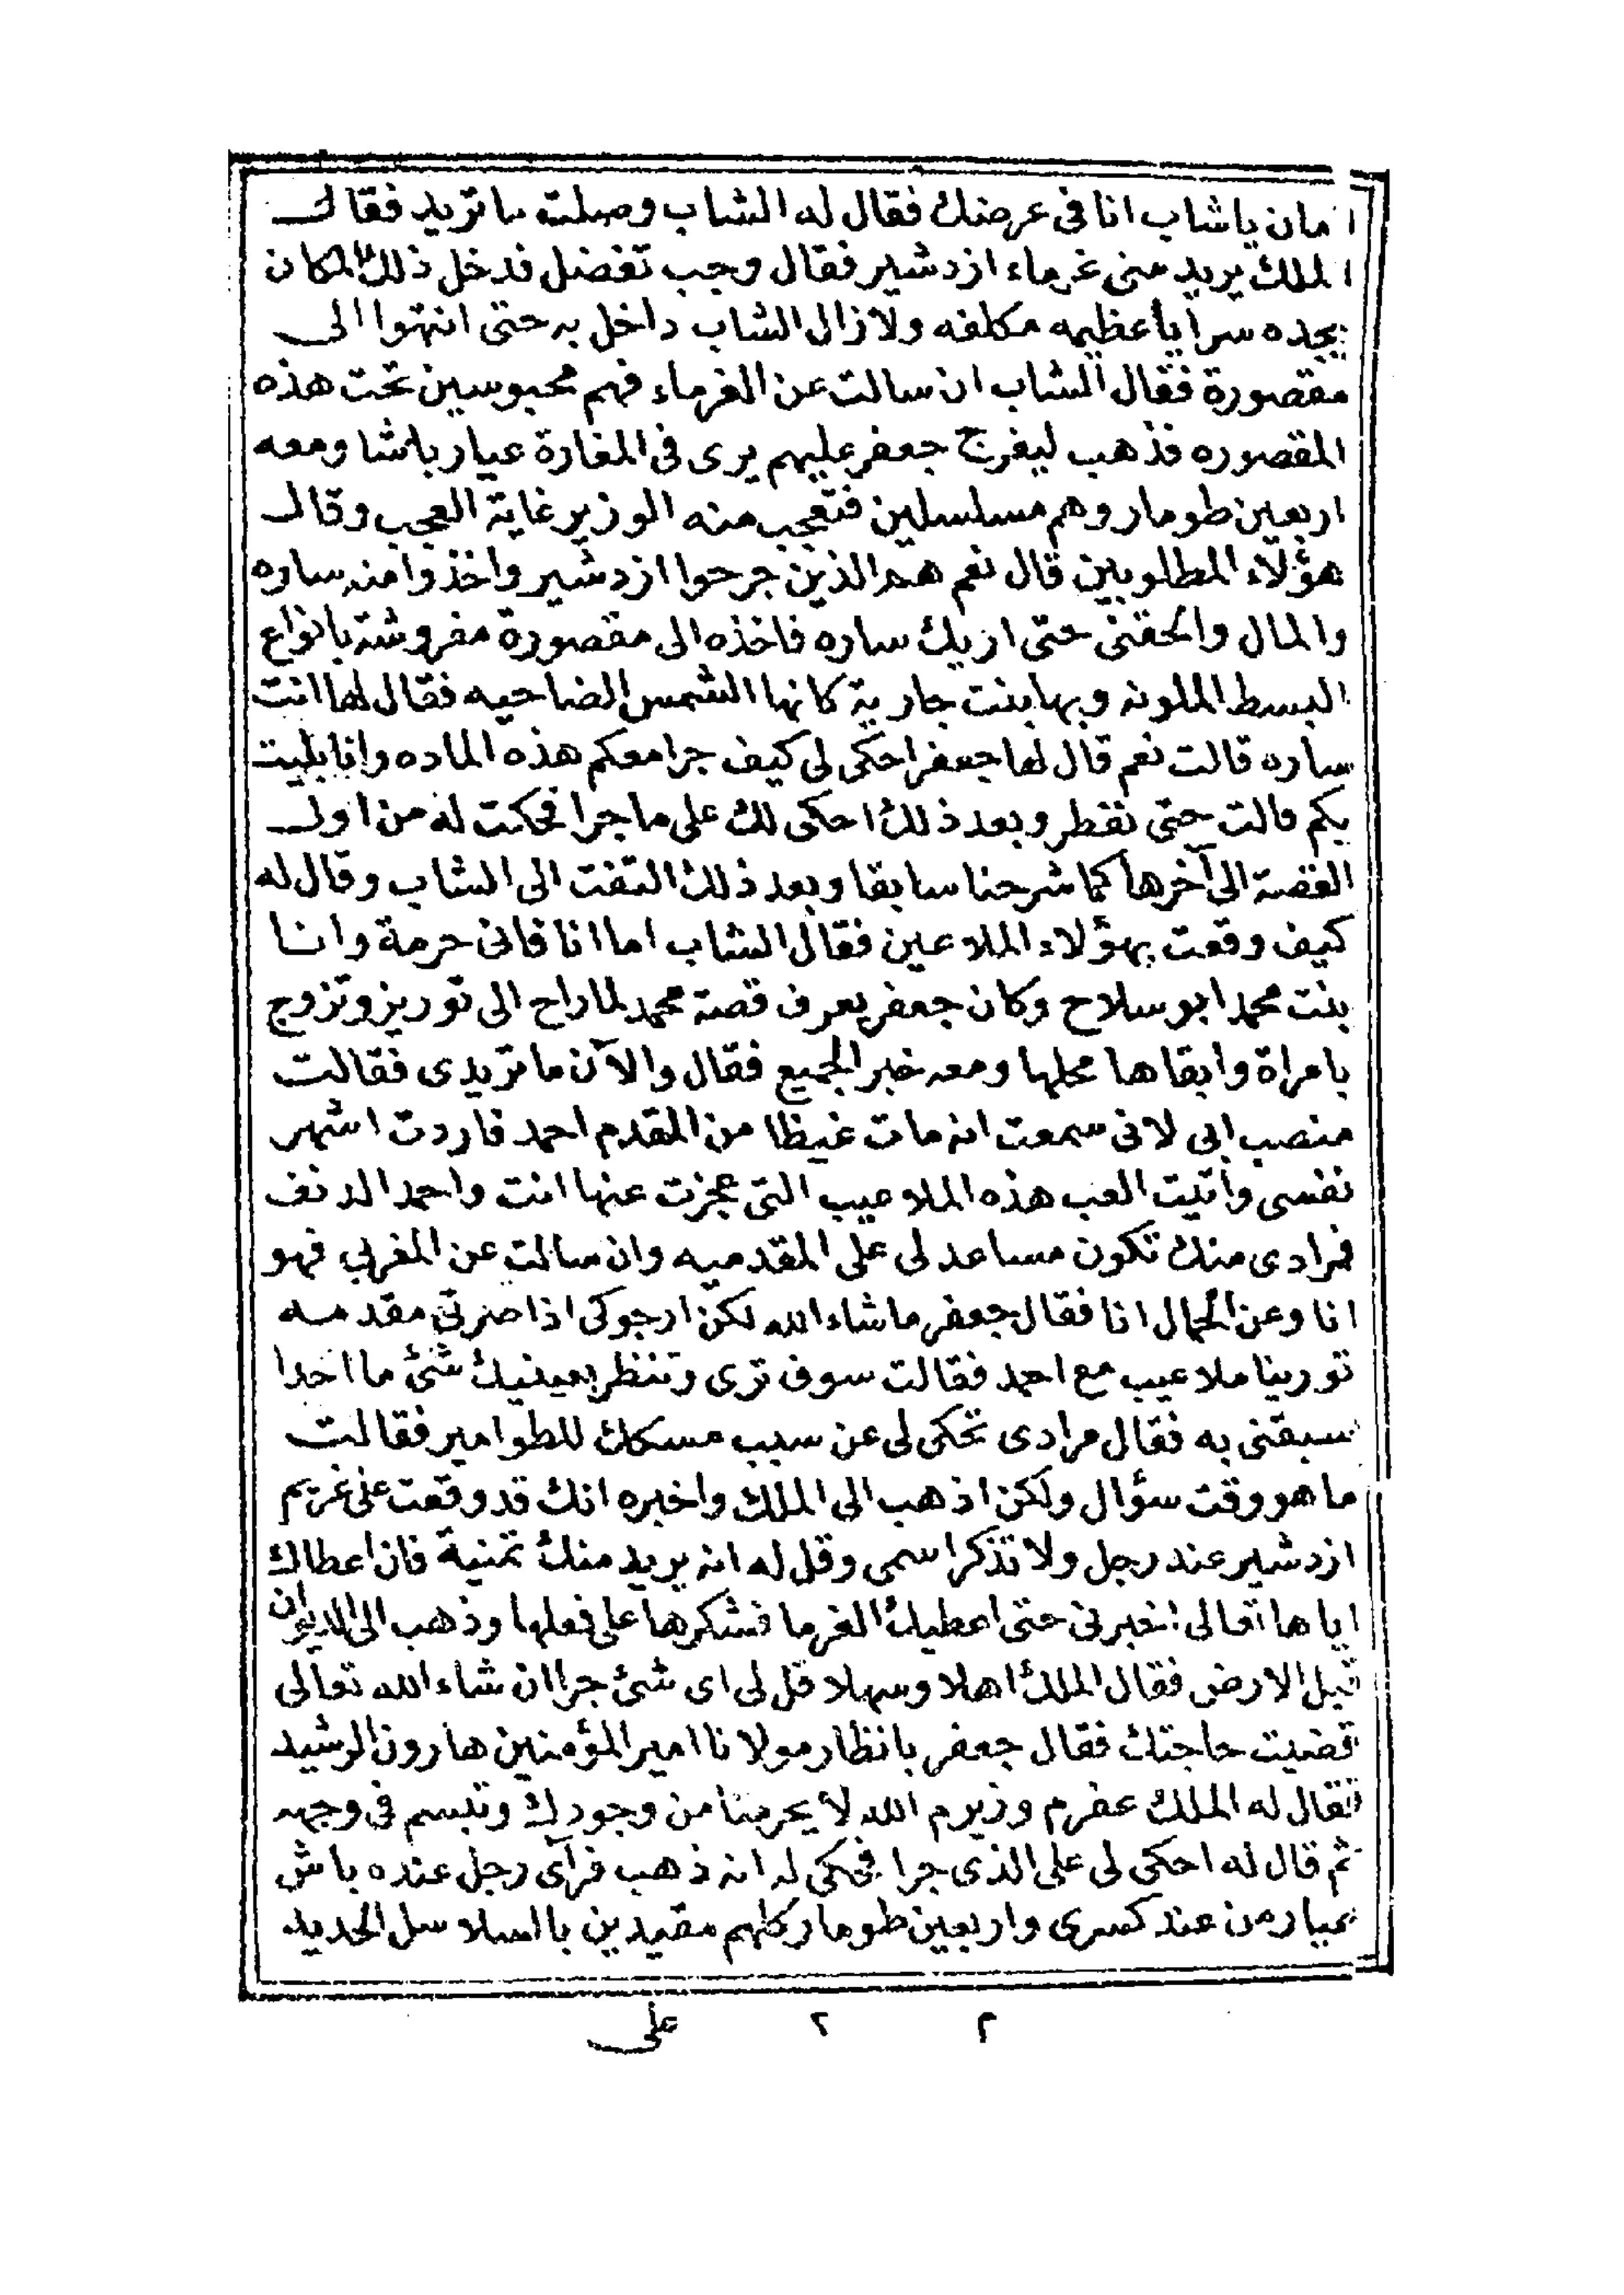 امان ياشاب انا فى عرضك فقال له الشاب وصلت ما تريد فقال
الملك يريد منى غرماء ازدشير فقال وجب تفضل فدخل ذلك المكان
يجده سرايا عظيمه مكلفه ولازال الشاب داخل به حتى انتهوا الى
مقصورة فقال الشاب ان سالت عن الغرماء فهم محبوسين تحت هذه
المقصوره فذهب ليفرج جعفر عليهم يرى فى المغارة عيار باشا ومعه
اربعين طومار وهم مسلسلين فتعجب منه الوزير غاية العجب وقال
هؤلاء المطلوبين قال نعم هم الذين جرحوا ازدشير واخذوا منه ساره
والمال والحقنى حتى اريك ساره فاخذه الى مقصورة مفروشة بانواع
البسط الملونه وبها بنت جارية كانها الشمس الضاحيه فقال لها انت
ساره قالت نعم قال لها جعفر احكى لى كيف جرا معكم هذه الماده وانا بليت
بكم قالت حتى نفطر وبعد ذلك احكى لك على ما جرا فحكت له من اول
القصة الى آخرها كما شرحنا سابقا وبعد ذلك التفت الى الشاب وقال له
كيف وقعت بهؤلاء الملاعين فقال الشاب اما انا فانى حرمة وانا
بنت محمد ابو سلاح وكان جعفر يعرف قصة محمد لما راح الى توريز وتزوج
بامراة وابقاها محلها ومعه خبر الجميع فقال والآن ما تريدى فقالت
منصب ابى لانى سمعت انه مات غيظا من المقدم احمد فاردت اشهر
نفسى واتيت العب هذه الملاعيب التى عجزت عنها انت واحمد الدنف
فمرادى منك تكون مساعد لى على المقدميه وان سالت عن المغربى فهو
انا وعن الجمال انا فقال جعفر ما شاء الله لكن ارجوكى اذا صرتى مقدمه
تورينا ملاعيب مع احمد فقالت سوف ترى وتنظر بعينيك شئ ما احدا
سبقنى به فقال مرادى تحكى لى عن سبب مسكك للطوامير فقالت
ما هو وقت سؤال ولكن اذهب الى الملك واخبره انك قد وقعت على غريم
ازدشير عند رجل ولا تذكر اسمى وقل له انه يريد منك تمنية فان اعطاك
اياها تعالى اخبرنى حتى اعطيك الغرما فشكرها على فعلها وذهب الى الديوان
قبل الارض فقال الملك اهلا وسهلا قل لى اى شئ جرا ان شاء الله تعالى
قضيت حاجتك فقال جعفر بانظار مولانا امير المؤمنين هارون الرشيد
فقال له الملك عفرم وزيرم الله لا يحرمنا من وجودك وتبسم فى وجهه
ثم قال له احكى لى على الذى جرا فحكى له انه ذهب فرآى رجل عنده باش
عيار من عند كسرى واربعين طومار كلهم مقيدين بالسلاسل الحديد
م ٢ على